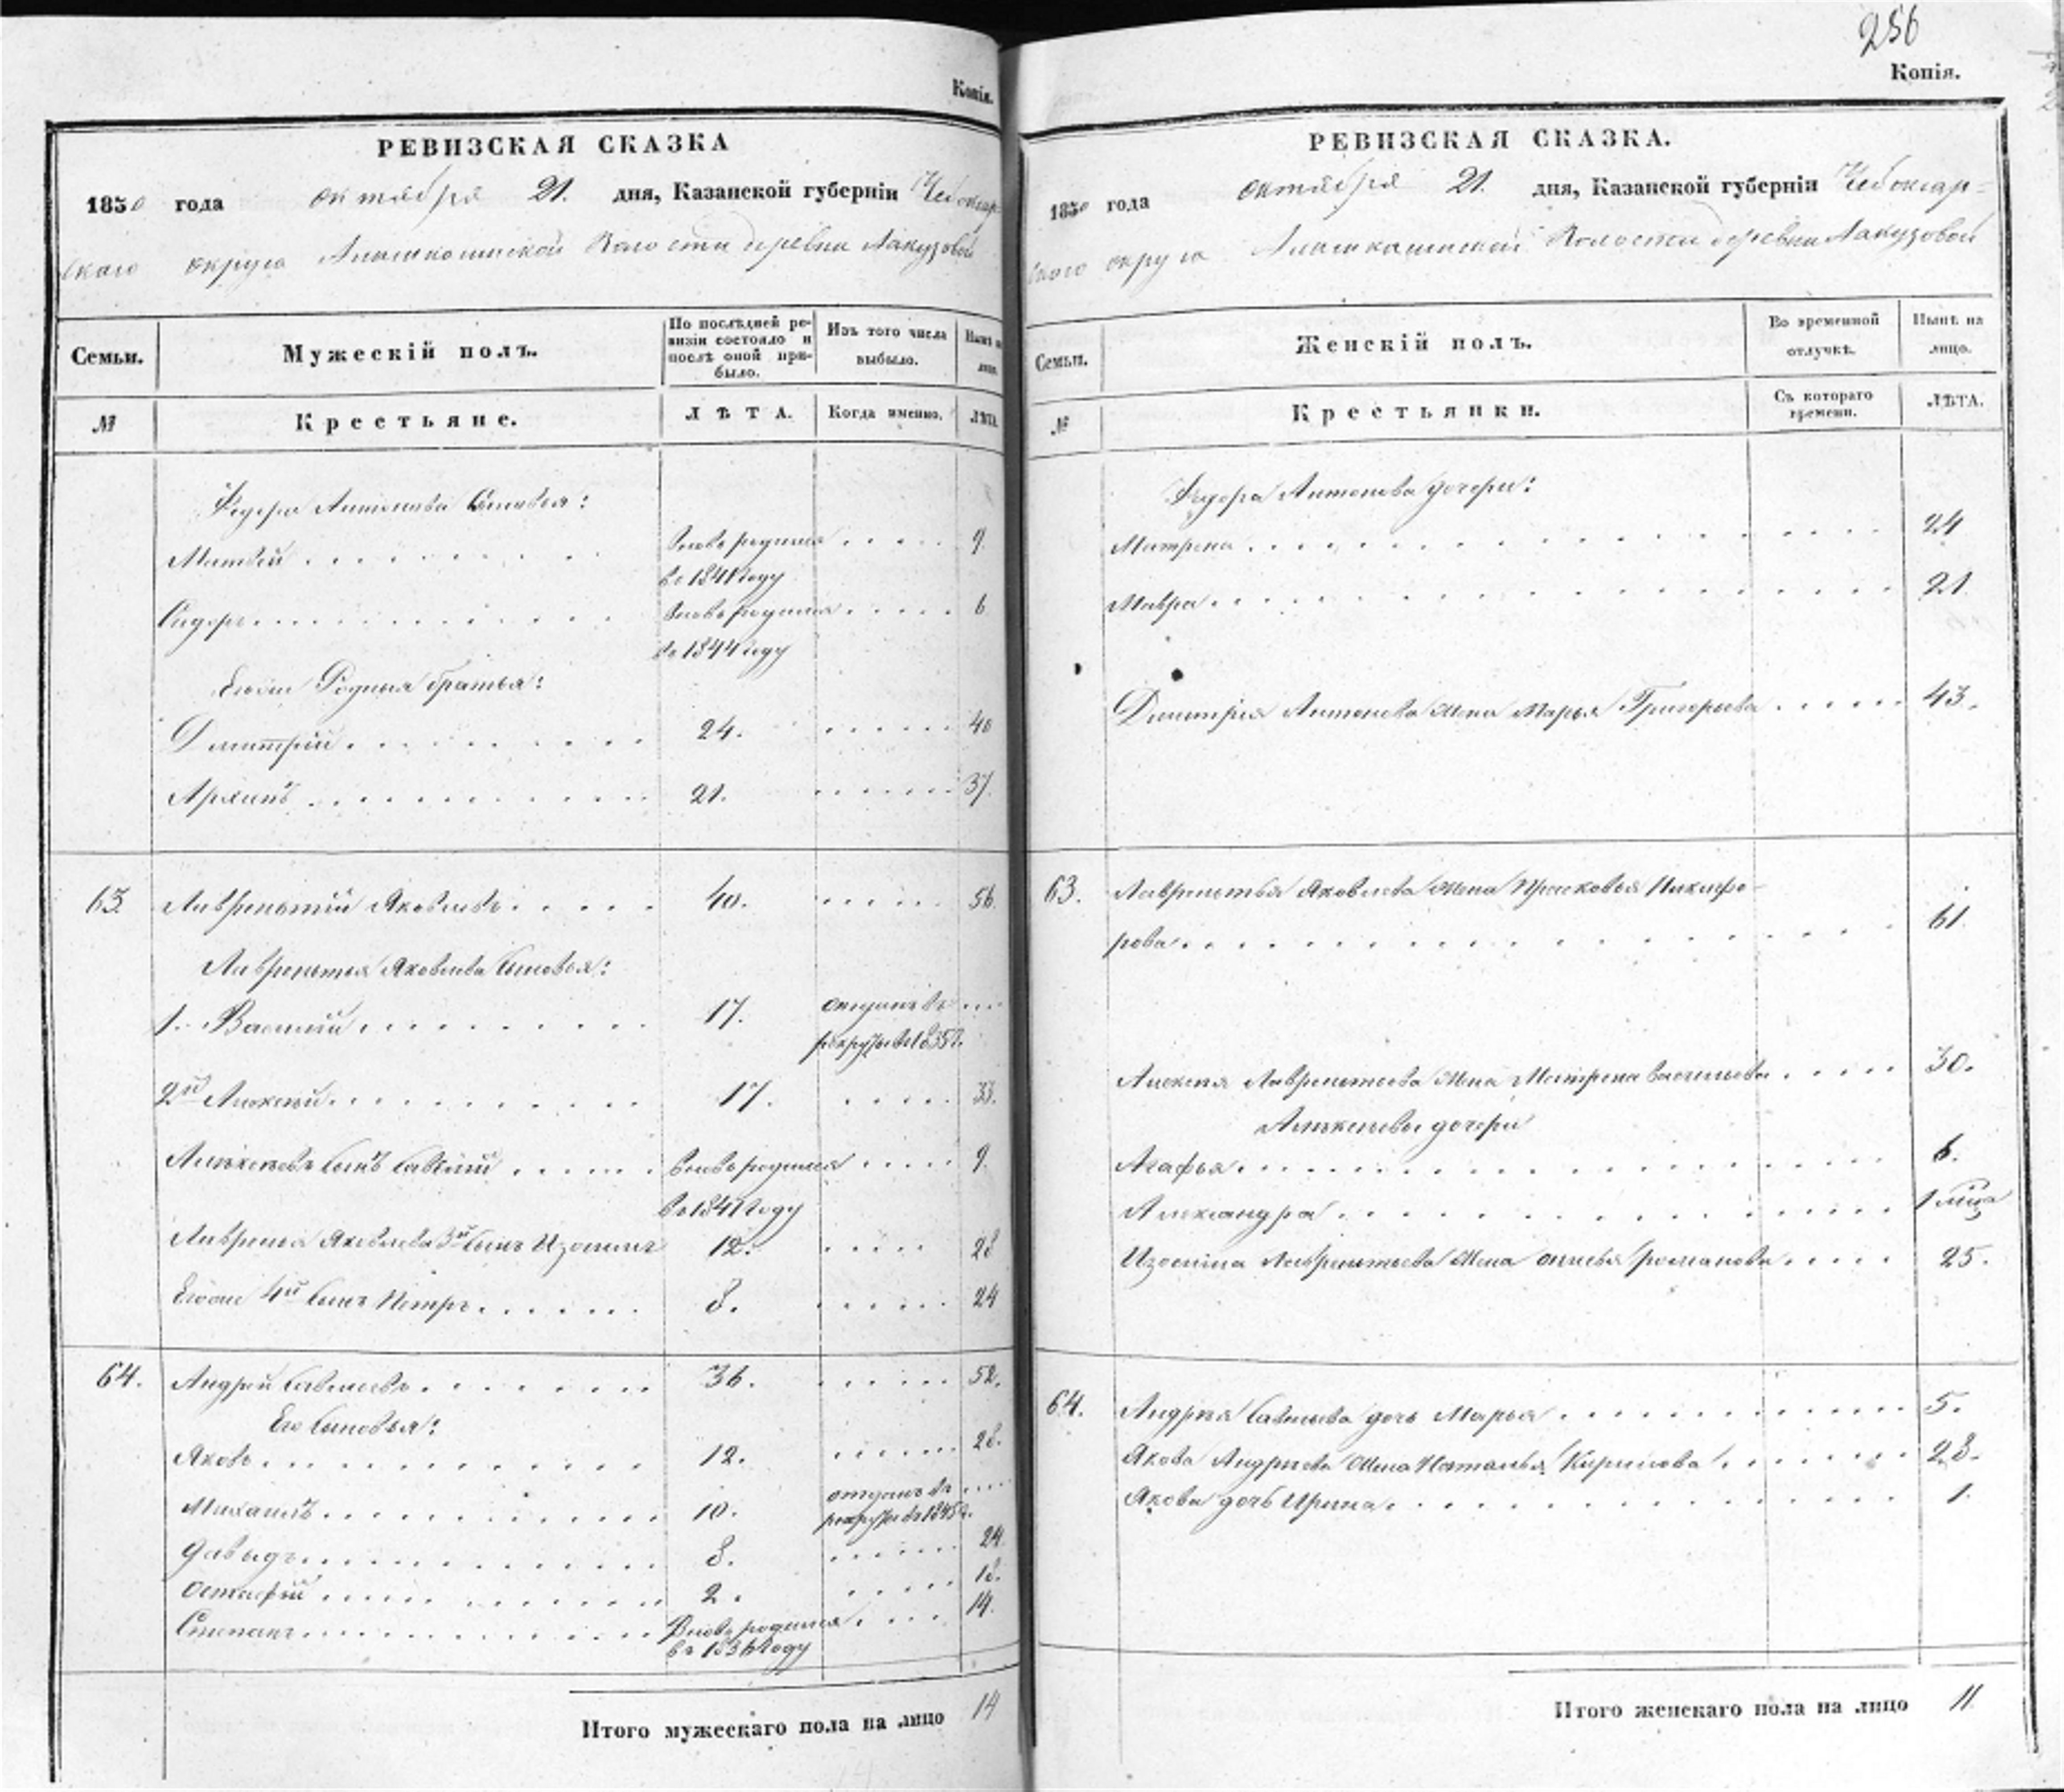 Копія.
РЕВИЗСКАЯ СКАЗКА
1850 года октября 21. дня, Казанской губерніи Чебоксар-
скаго округа Волости деревни Лапузовой
Семьи.
Мужескій полъ.
По послѣдней ре-
визіи состояло и
послѣ оной при-
было.
Изъ того числа
выбыло.
Нынѣ на
лицо.
№
Крестьяне.
ЛѢТА.
Когда именно.
ЛѢТА.
Федора Антонова Сыновья:
Матвей . . . . . Вновь родился . . . . . 9.
въ 1841 году
Сидоръ . . . . . Вновь родился . . . . . 6
въ 1844 году
Егоже Родныя братья:
Дмитрій . . . . . 24. . . . . . 40
Архипъ . . . . . 21. . . . . . 37.
63. Лаврентий Яковлевъ . . . . . 40. . . . . . 56.
Лаврентья Яковлева Сыновья:
1. Василий . . . . . 17. отданъ въ . . .
рекруты въ 1835 г.
2й Алексей . . . . . 17. . . . . . 33.
Алексеевъ сынъ Савелий . . . . . вновь родился . . . . . 9.
въ 1841 году
Лавренья Яковлева 3й сынъ Изосимъ 12. . . . . 28
Егоже 4й сынъ Петръ . . . . . 8. . . . . . 24
64. Андрей Савельевъ . . . . . 36. . . . . . 52.
Его Сыновья:
Яковъ . . . . . 12. . . . . . 28.
Михаилъ . . . . . 10. отданъ въ . . .
рекруты въ 1845 г.
Давыдъ . . . . . 8. . . . . . 24
Остафий . . . . . 2. . . . . . 18.
Степанъ . . . . . Вновь родился . . . . 14.
въ 1836 году
Итого мужескаго пола на лицо 14
256
Копія.
РЕВИЗСКАЯ СКАЗКА.
1850 года октября 21. дня, Казанской губерніи Чебоксар-
скаго округа Волости деревни Лапузовой
Семьи.
Женскій полъ.
Во временной
отлучкѣ.
Нынѣ на
лицо.
№
Крестьянки.
Съ котораго
времени.
ЛѢТА.
Федора Антонова дочери:
Матрена . . . . . 24
Мавра . . . . . 21.
Дмитрия Антонова жена Марья Григорьева . . . . . 43.
63. Лаврентья Яковлева жена Прасковья Никифо-
рова . . . . . 61.
Алексея Лаврентьева жена Матрена Васильева . . . . . 30.
Алексеевы дочери
Агафья . . . . . 6.
Александра . . . . . 1 мца
Изосима Лаврентьева жена Романова . . . . 25.
64. Андрея Савельева дочь Марья . . . . . 5.
Якова Андреева жена Наталья Кирилова . . . . . 28.
Якова дочь Ирина . . . . . 1.
Итого женскаго пола на лицо 11.